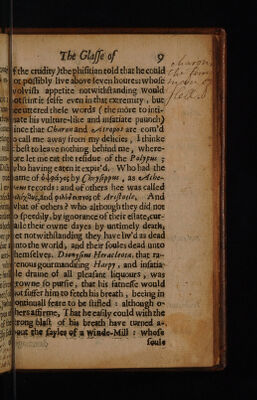 The Glasse of 9
f the crudity) the phisitian told that he could
ot possibly live above seven houres: whose
volvish appetite notwithstanding would
ot stint it selfe even in that extremity, but
ee uttered these words (the more to inti-
ate his vulture-like and insatiate paunch)
ince that Charon and Atropos are com'd
o call me away from my delicies, I thinke
best to leave nothing behind me, where-
ore let me eat the residue of the Polypus;
ho having eaten it expir'd. Who had the
ame of ὀψοφάγος by Chrysippus, as Athe-
records: and of others hee was called
and of Aristotle. And
what of others? who although they did not
o speedily, by ignorance of their estate, cur-
aile their owne dayes by untimely death,
et notwithstanding they have liv'd as dead
unto the world, and their soules dead unto
hemselves. Dionysius Heracleota, that ra-
enous gourmandizing Harpy, and insatia-
le draine of all pleasant liquours, was
rowne so pursie, that his fatnesse would
ot suffer him to fetch his breath, beeing in
ontinuall feare to be stifled: although o-
hers affirme, That he easily could with the
trong blast of his breath have turned a-
out the sayles of a winde-Mill: whose
soule
charon
the ferry